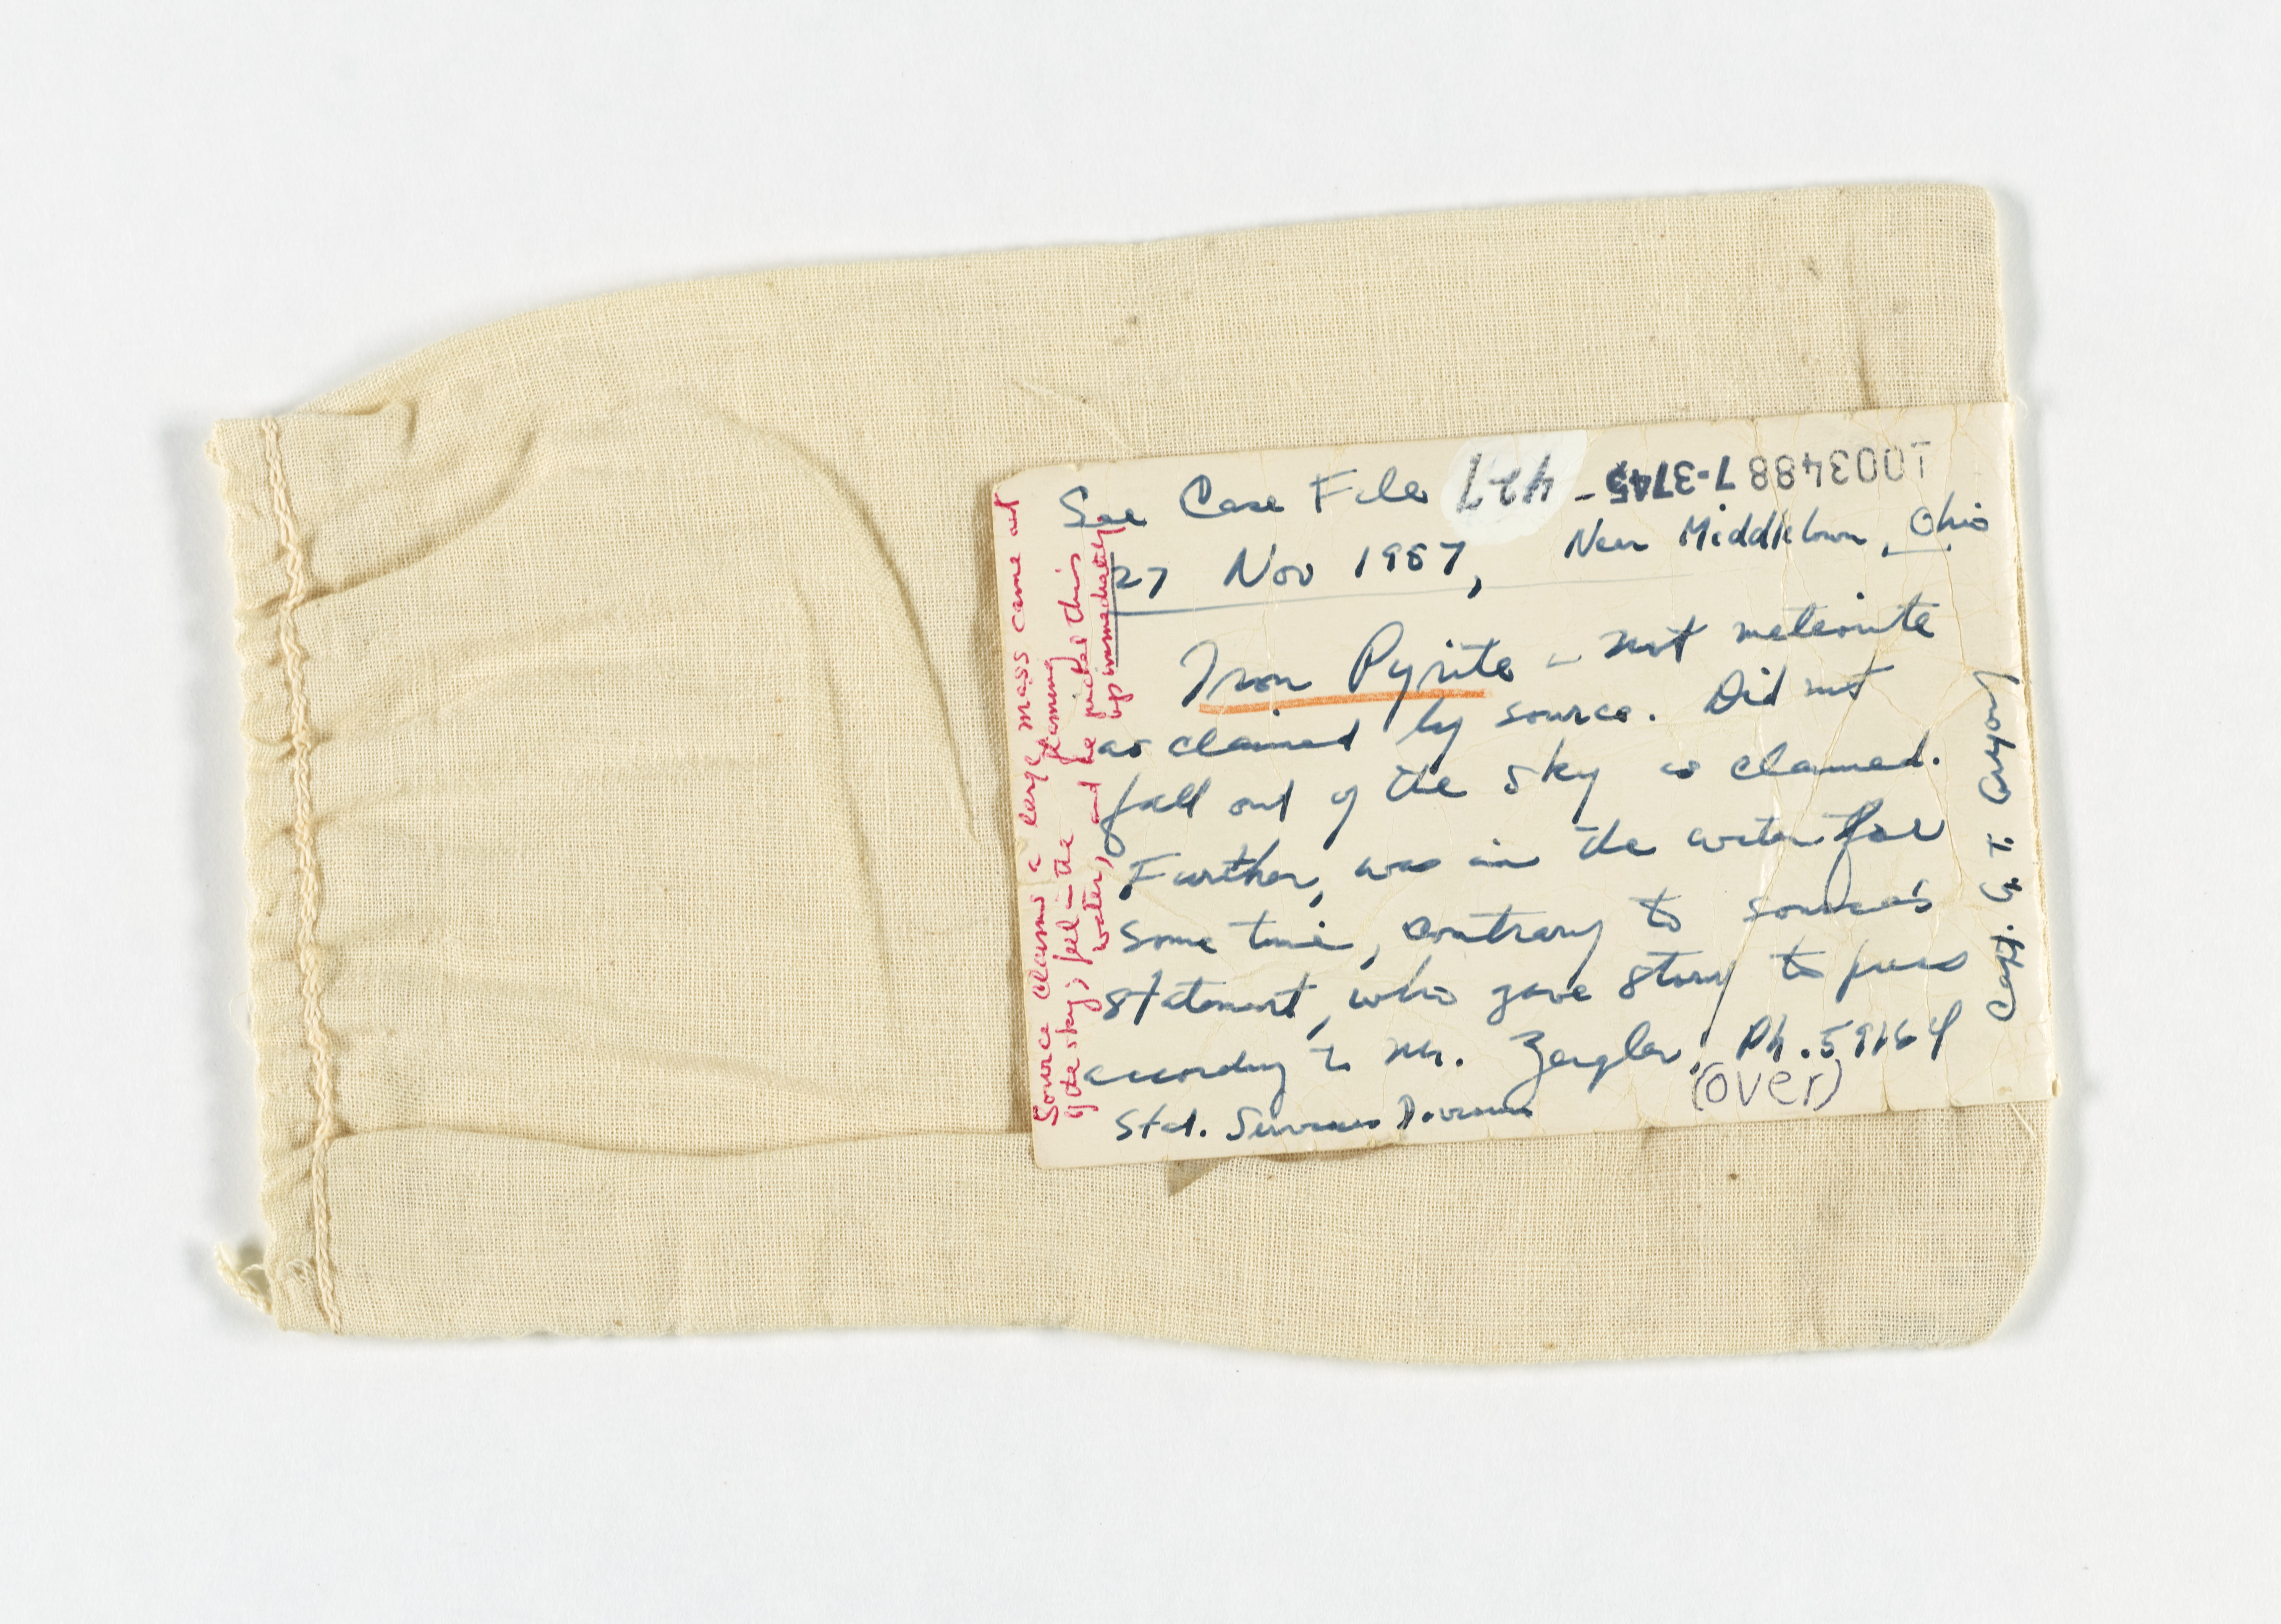 See Case File 427 - 7-3745 1003488
27 Nov 1957, Near Middletown, Ohio
Iron Pyrite - not meteorite
as claimed by source. Did not
fall out of the sky as claimed.
Further, was in the water for
some time, contrary to source's
statement, who gave story to press
according to Mr. Zeigler, Ph. 59164
(over)
Stat. Services Division
Source claims a large flaming mass came out
of the sky; fell in the water, and he picked this up immediately
Capt. G. T.